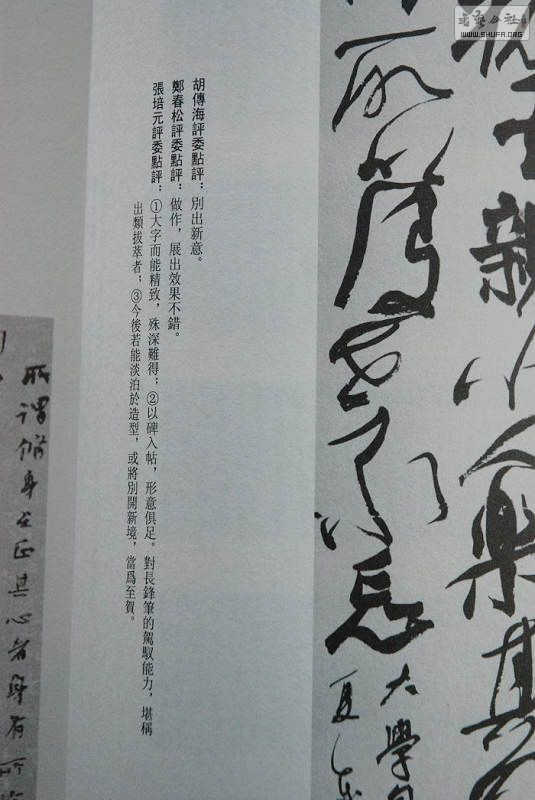 書藝公社
WWW.SHUFA.ORG
親小人樂其
世不忘
大學
夏
胡傳海評委點評：別出新意。
鄭春松評委點評：做作，展出效果不錯。
張培元評委點評：①大字而能精致，殊深難得；②以碑入帖，形意俱足。對長鋒筆的駕馭能力，堪稱
出類拔萃者；③今後若能淡泊於造型，或將別開新境，當爲至賀。
所謂修身在正其心者身有所